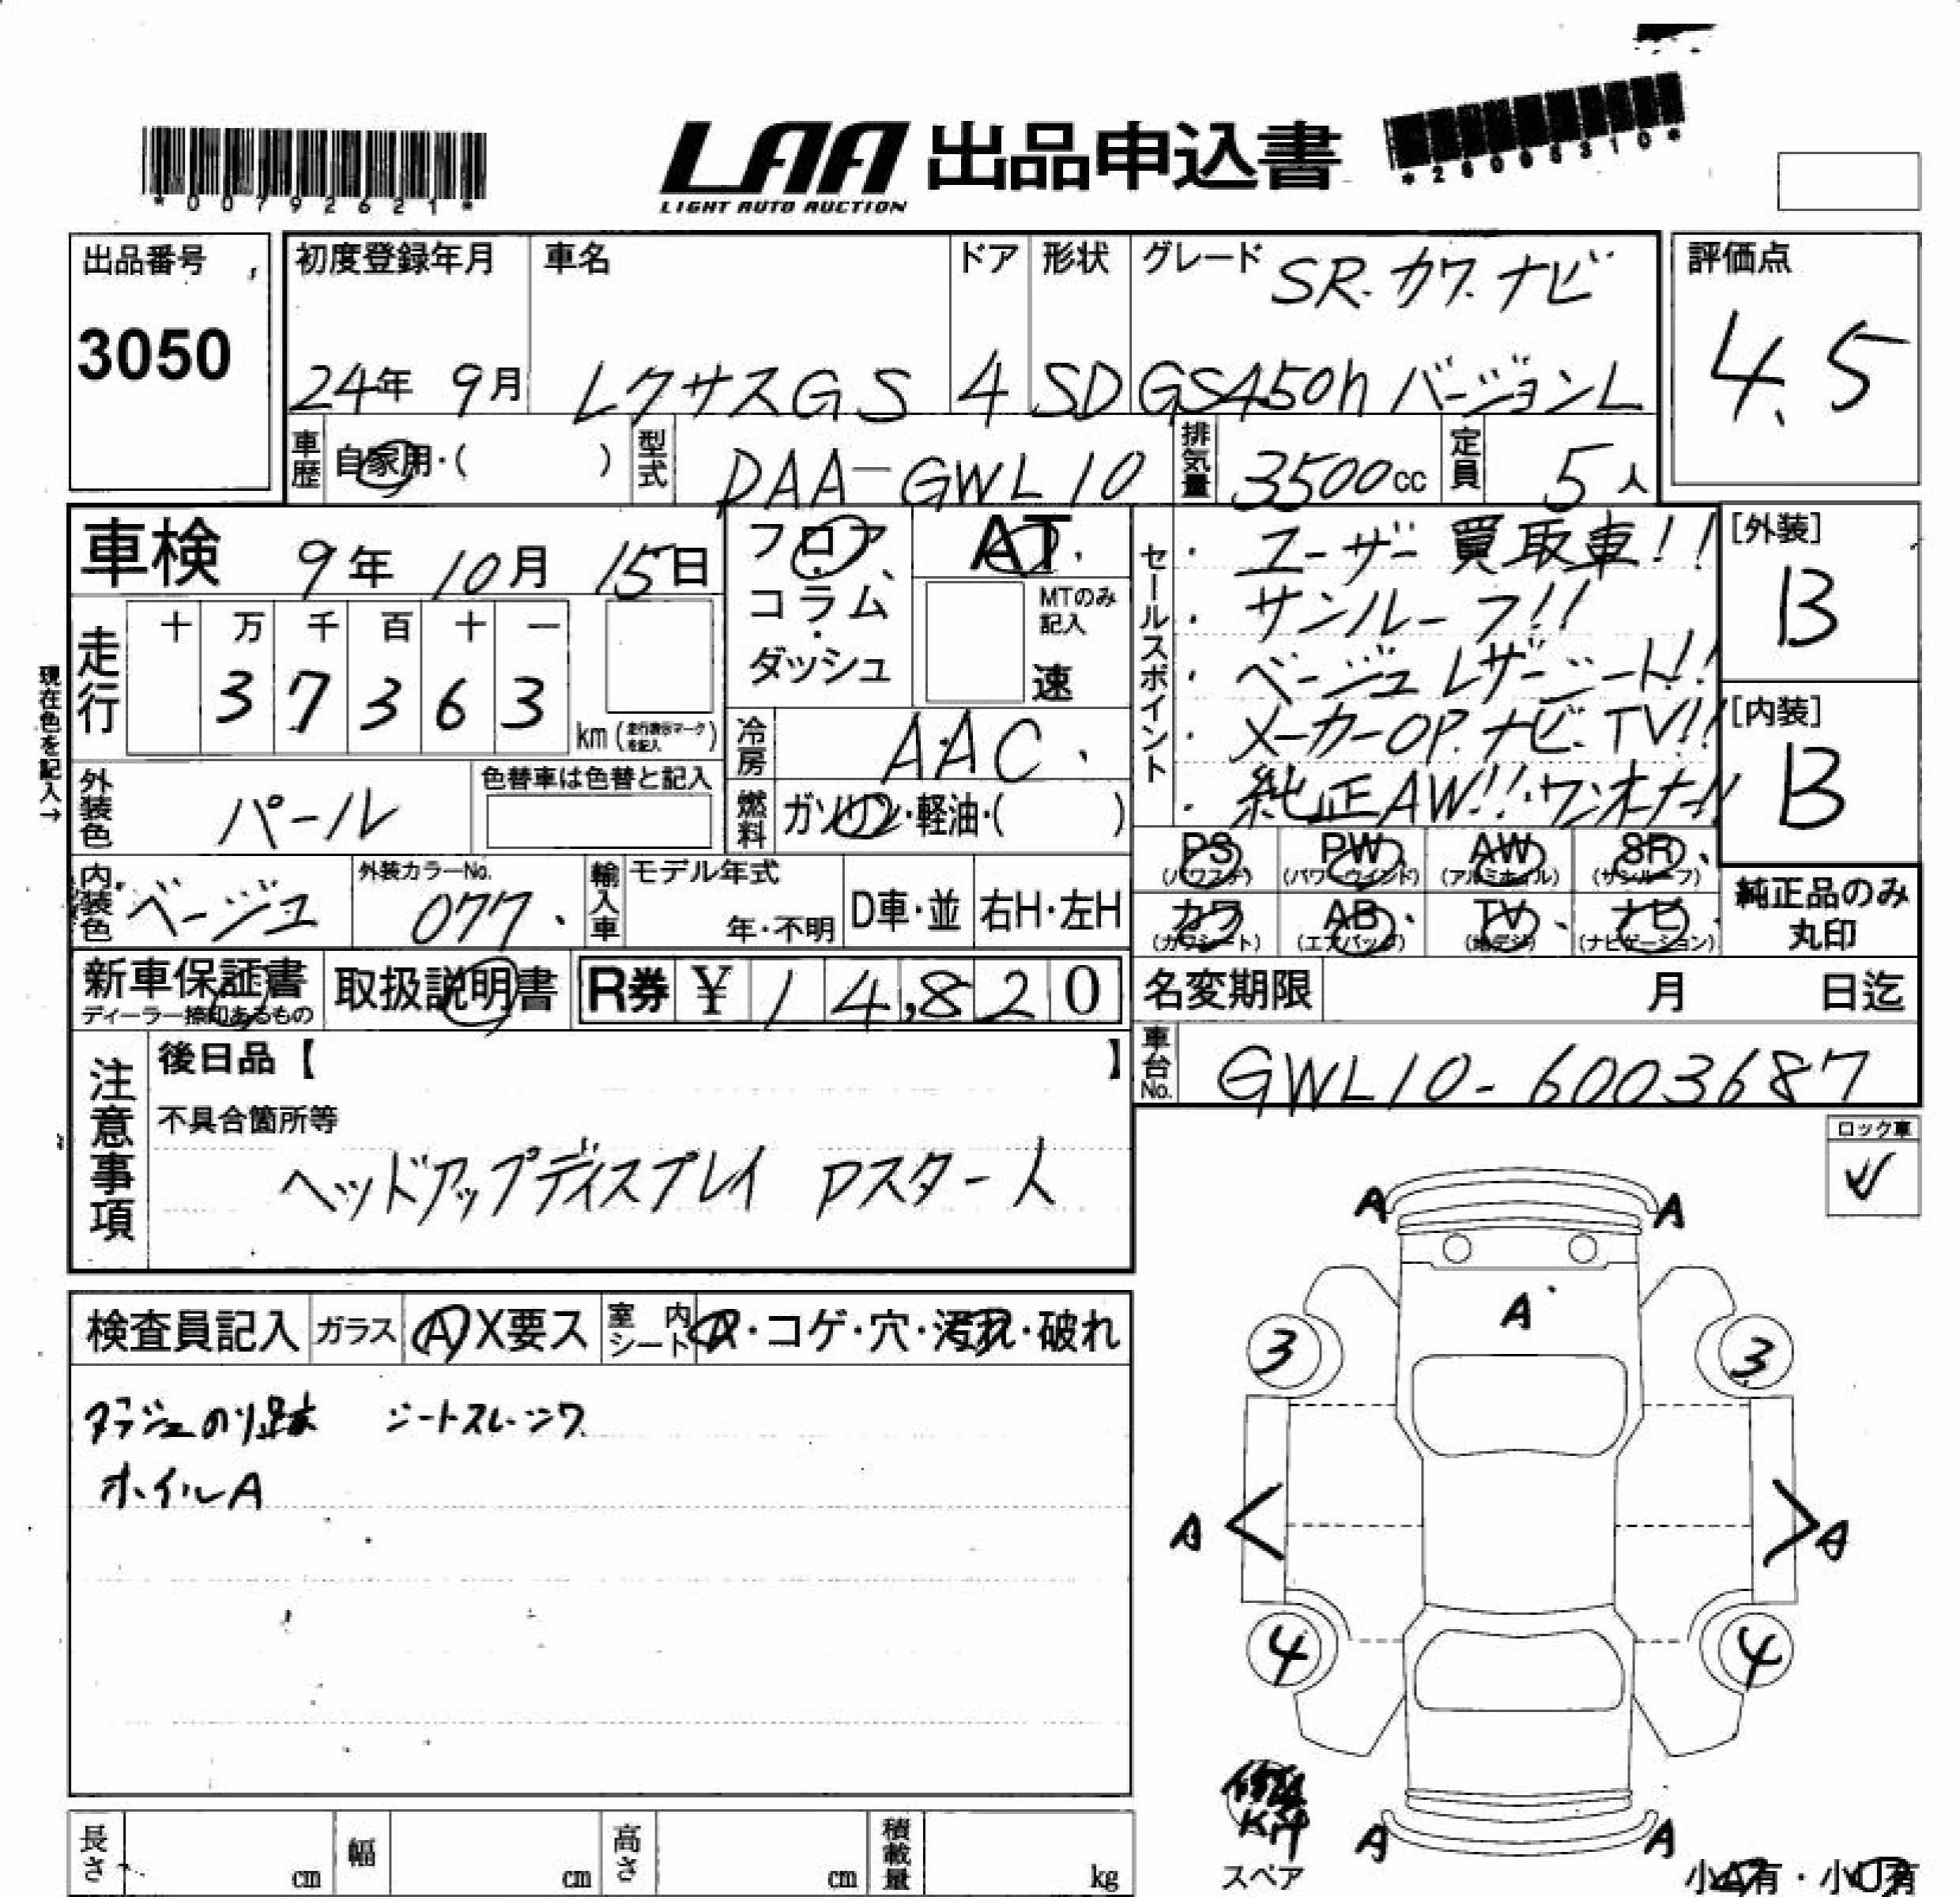 *00792621*
LAA 出品申込書
LIGHT AUTO AUCTION
*26065310*
出品番号
3050
初度登録年月
24年 9月
車名
レクサスGS
ドア
4
形状
SD
グレード
SR.カワ.ナビ
GS450h バージョンL
評価点
4.5
車歴 自家用・( )
型式 DAA-GWL10
排気量 3500cc
定員 5人
車検 9年 10月 15日
フロア・コラム・ダッシュ
AT
MTのみ記入
速
セールスポイント
・ユーザー買取車!!
・サンルーフ!!
・ベージュレザーシート!!
・メーカーOP.ナビ.TV!!
・純正AW!!・ワンオーナー!!
[外装]
B
[内装]
B
現在色を記入→
走行
十 万 千 百 十 一
3 7 3 6 3
km (走行表示マークを記入)
冷房 AAC.
燃料 ガソリン・軽油・( )
外装色 パール
色替車は色替と記入
内装色 ベージュ
外装カラーNo.
077.
輸入車
モデル年式
年・不明
D車・並
右H・左H
PS
(パワステ)
PW
(パワーウインド)
AW
(アルミホイル)
SR
(サンルーフ)
カワ
(カワシート)
AB
(エアバッグ)
TV
(地デジ)
ナビ
(ナビゲーション)
純正品のみ
丸印
新車保証書
ディーラー捺印あるもの
取扱説明書
R券 ¥ 14,820
名変期限 月 日迄
車台No. GWL10-6003687
注意事項
後日品【 】
不具合箇所等
ヘッドアップディスプレイ Pスタート
ロック車
検査員記入
ガラス A X要ス
室内シート A・コゲ・穴・汚れ・破れ
シートスレ・シワ
ホイルA
A A
A
3 3
A A
4 4
A A
スペア
小A有・小U有
長さ cm
幅 cm
高さ cm
積載量 kg